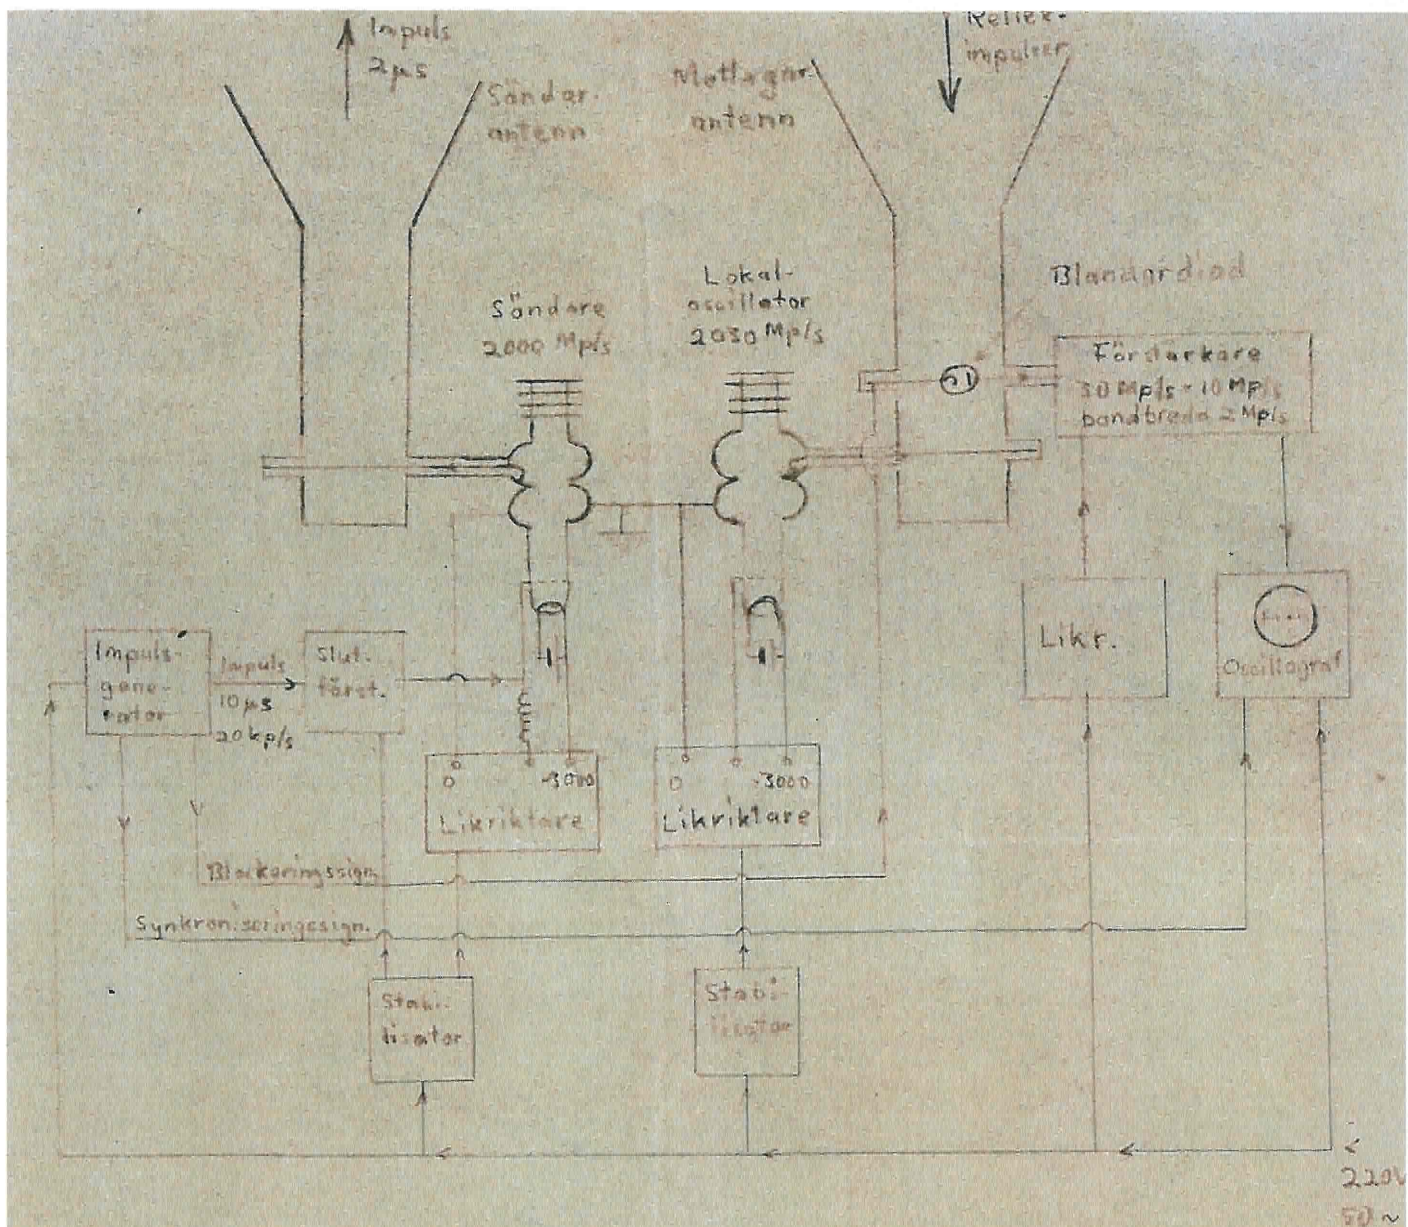 Impuls
2µs
Reflex-
impulser
Sändar-
antenn
Mottagar-
antenn
Sändare
2000 Mp/s
Lokal-
oscillator
2030 Mp/s
Blandardiod
Förstärkare
30 Mp/s - 10 Mp/s
bandbredd 2 Mp/s
Impuls-
gene-
rator
Impuls
10µs
20kp/s
Slut.
först.
Likr.
Oscillograf
0
-3000
Likriktare
0
-3000
Likriktare
Blockeringssign.
Synkroniseringssign.
Stabi-
lisator
Stabi-
lisator
220V
50~